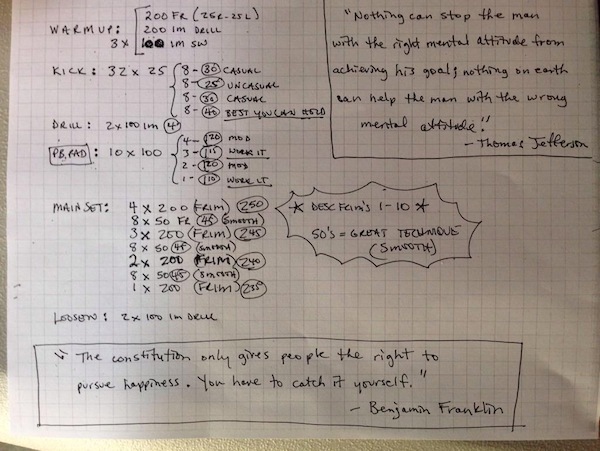 WARM UP: 200 FR (25R-25L)
200 IM DRILL
3 X 100 IM SW
KICK: 32 X 25 8-30 CASUAL
8-25 UNCASUAL
8-30 CASUAL
8-40 BEST YOU CAN HOLD
DRILL: 2X100 IM
PB, PAD: 10 X 100 4-120 MOD
3-115 WORK IT
2-120 MOD
1-110 WORK IT
MAIN SET: 4 X 200 (FRIM) 250
8 X 50 FR 45 SMOOTH
3 X 200 (FRIM) 245
8 X 50 45 (SMOOTH)
2 X 200 FRIM) 240
8 X 50 45 (SMOOTH)
1 X 200 (FRIM) 235
LOOSEN: 2 X 100 IM DRILL
"Nothing can stop the man
with the right mental attitude from
achieving his goal; nothing on earth
can help the man with the wrong
mental attitude."
- Thomas Jefferson
* DESC FRIM'S 1-10 *
50'S = GREAT TECHNIQUE
(SMOOTH)
"The constitution only gives people the right to
pursue happiness. You have to catch it yourself."
- Benjamin Franklin